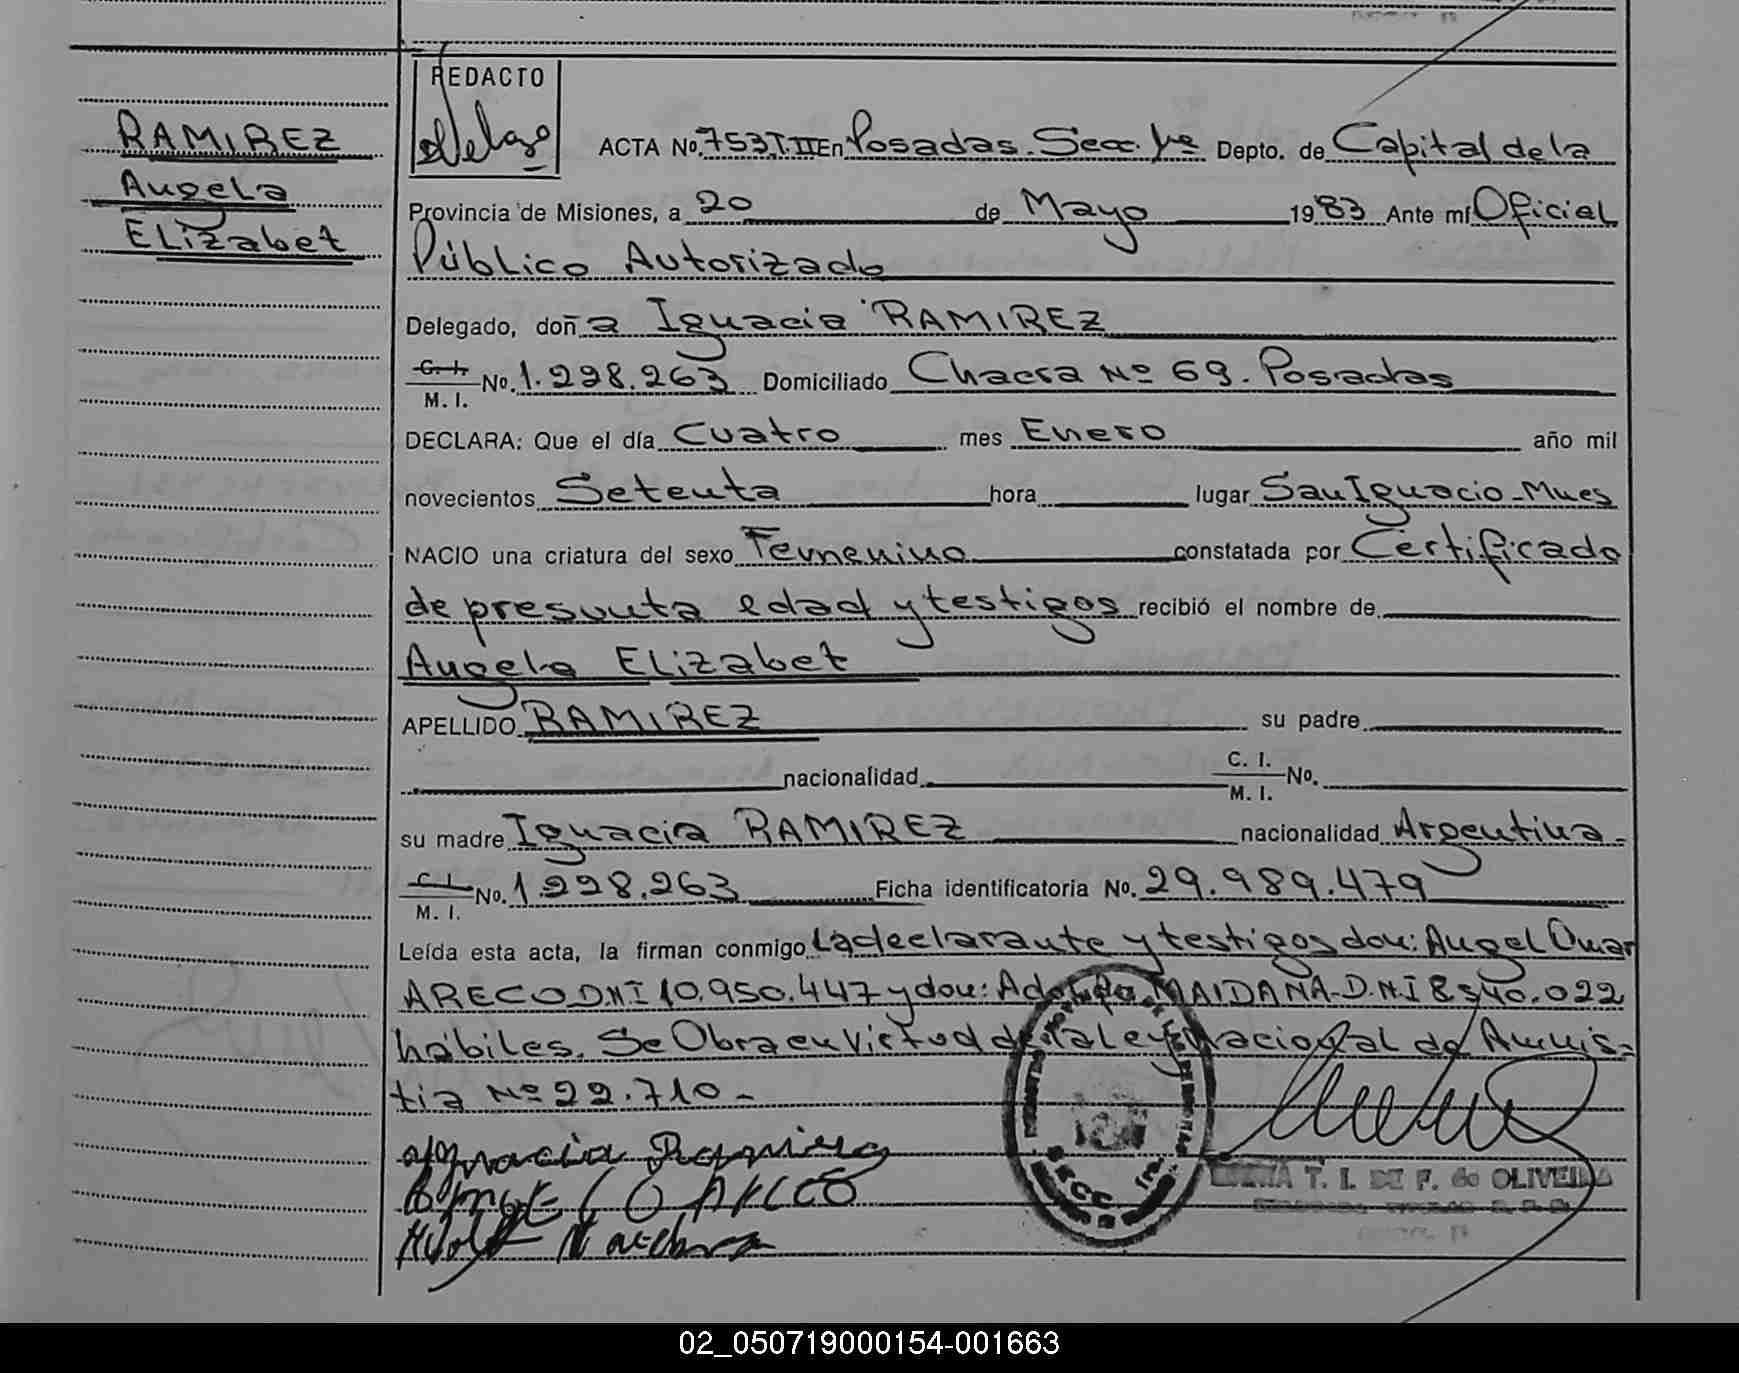 RAMIREZ
Angela
ELizabet
REDACTO
ACTA No. 753 T.II En Posadas. Secc. 1ra Depto. de Capital de la
Provincia de Misiones, a 20 de Mayo 1983 Ante mí Oficial
Público Autorizado
Delegado, doña Ignacia RAMIREZ
C. I. M. I. No. 1.228.263 Domiciliado Chacra Nº 69. Posadas
DECLARA: Que el día Cuatro mes Enero año mil
novecientos Setenta hora lugar San Ignacio - Mnes
NACIO una criatura del sexo Femenino constatada por Certificado
de presunta edad y testigos recibió el nombre de
Angela ELizabet
APELLIDO RAMIREZ su padre
nacionalidad C. I. M. I. No.
su madre Ignacia RAMIREZ nacionalidad Argentina-
C. I. M. I. No. 1.228.263 Ficha identificatoria No. 29.989.479
Leída esta acta, la firman conmigo La declarante y testigos don: Angel Omar
ARECO D.N.I 10.950.447 y don: Adolfo MAIDANA - D.N.I 8540.022
hábiles. Se Obra en Virtud de la ley Nacional de Amnis-
tia Nº 22.710 -
Ignacia Ramirez
ARECO
T. I. DE F. de OLIVEIRA
02_050719000154-001663